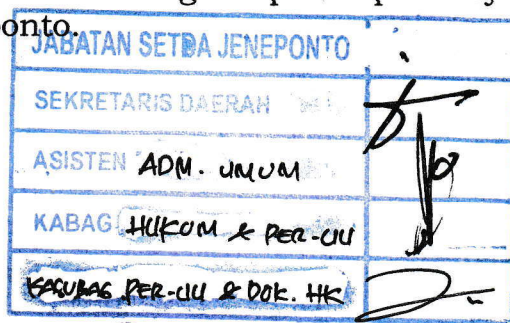 onto.
JABATAN SETDA JENEPONTO
SEKRETARIS DAERAH
ASISTEN ADM. UMUM
KABAG HUKUM & PER-UU
KASUBAG PER-UU & DOK. HK